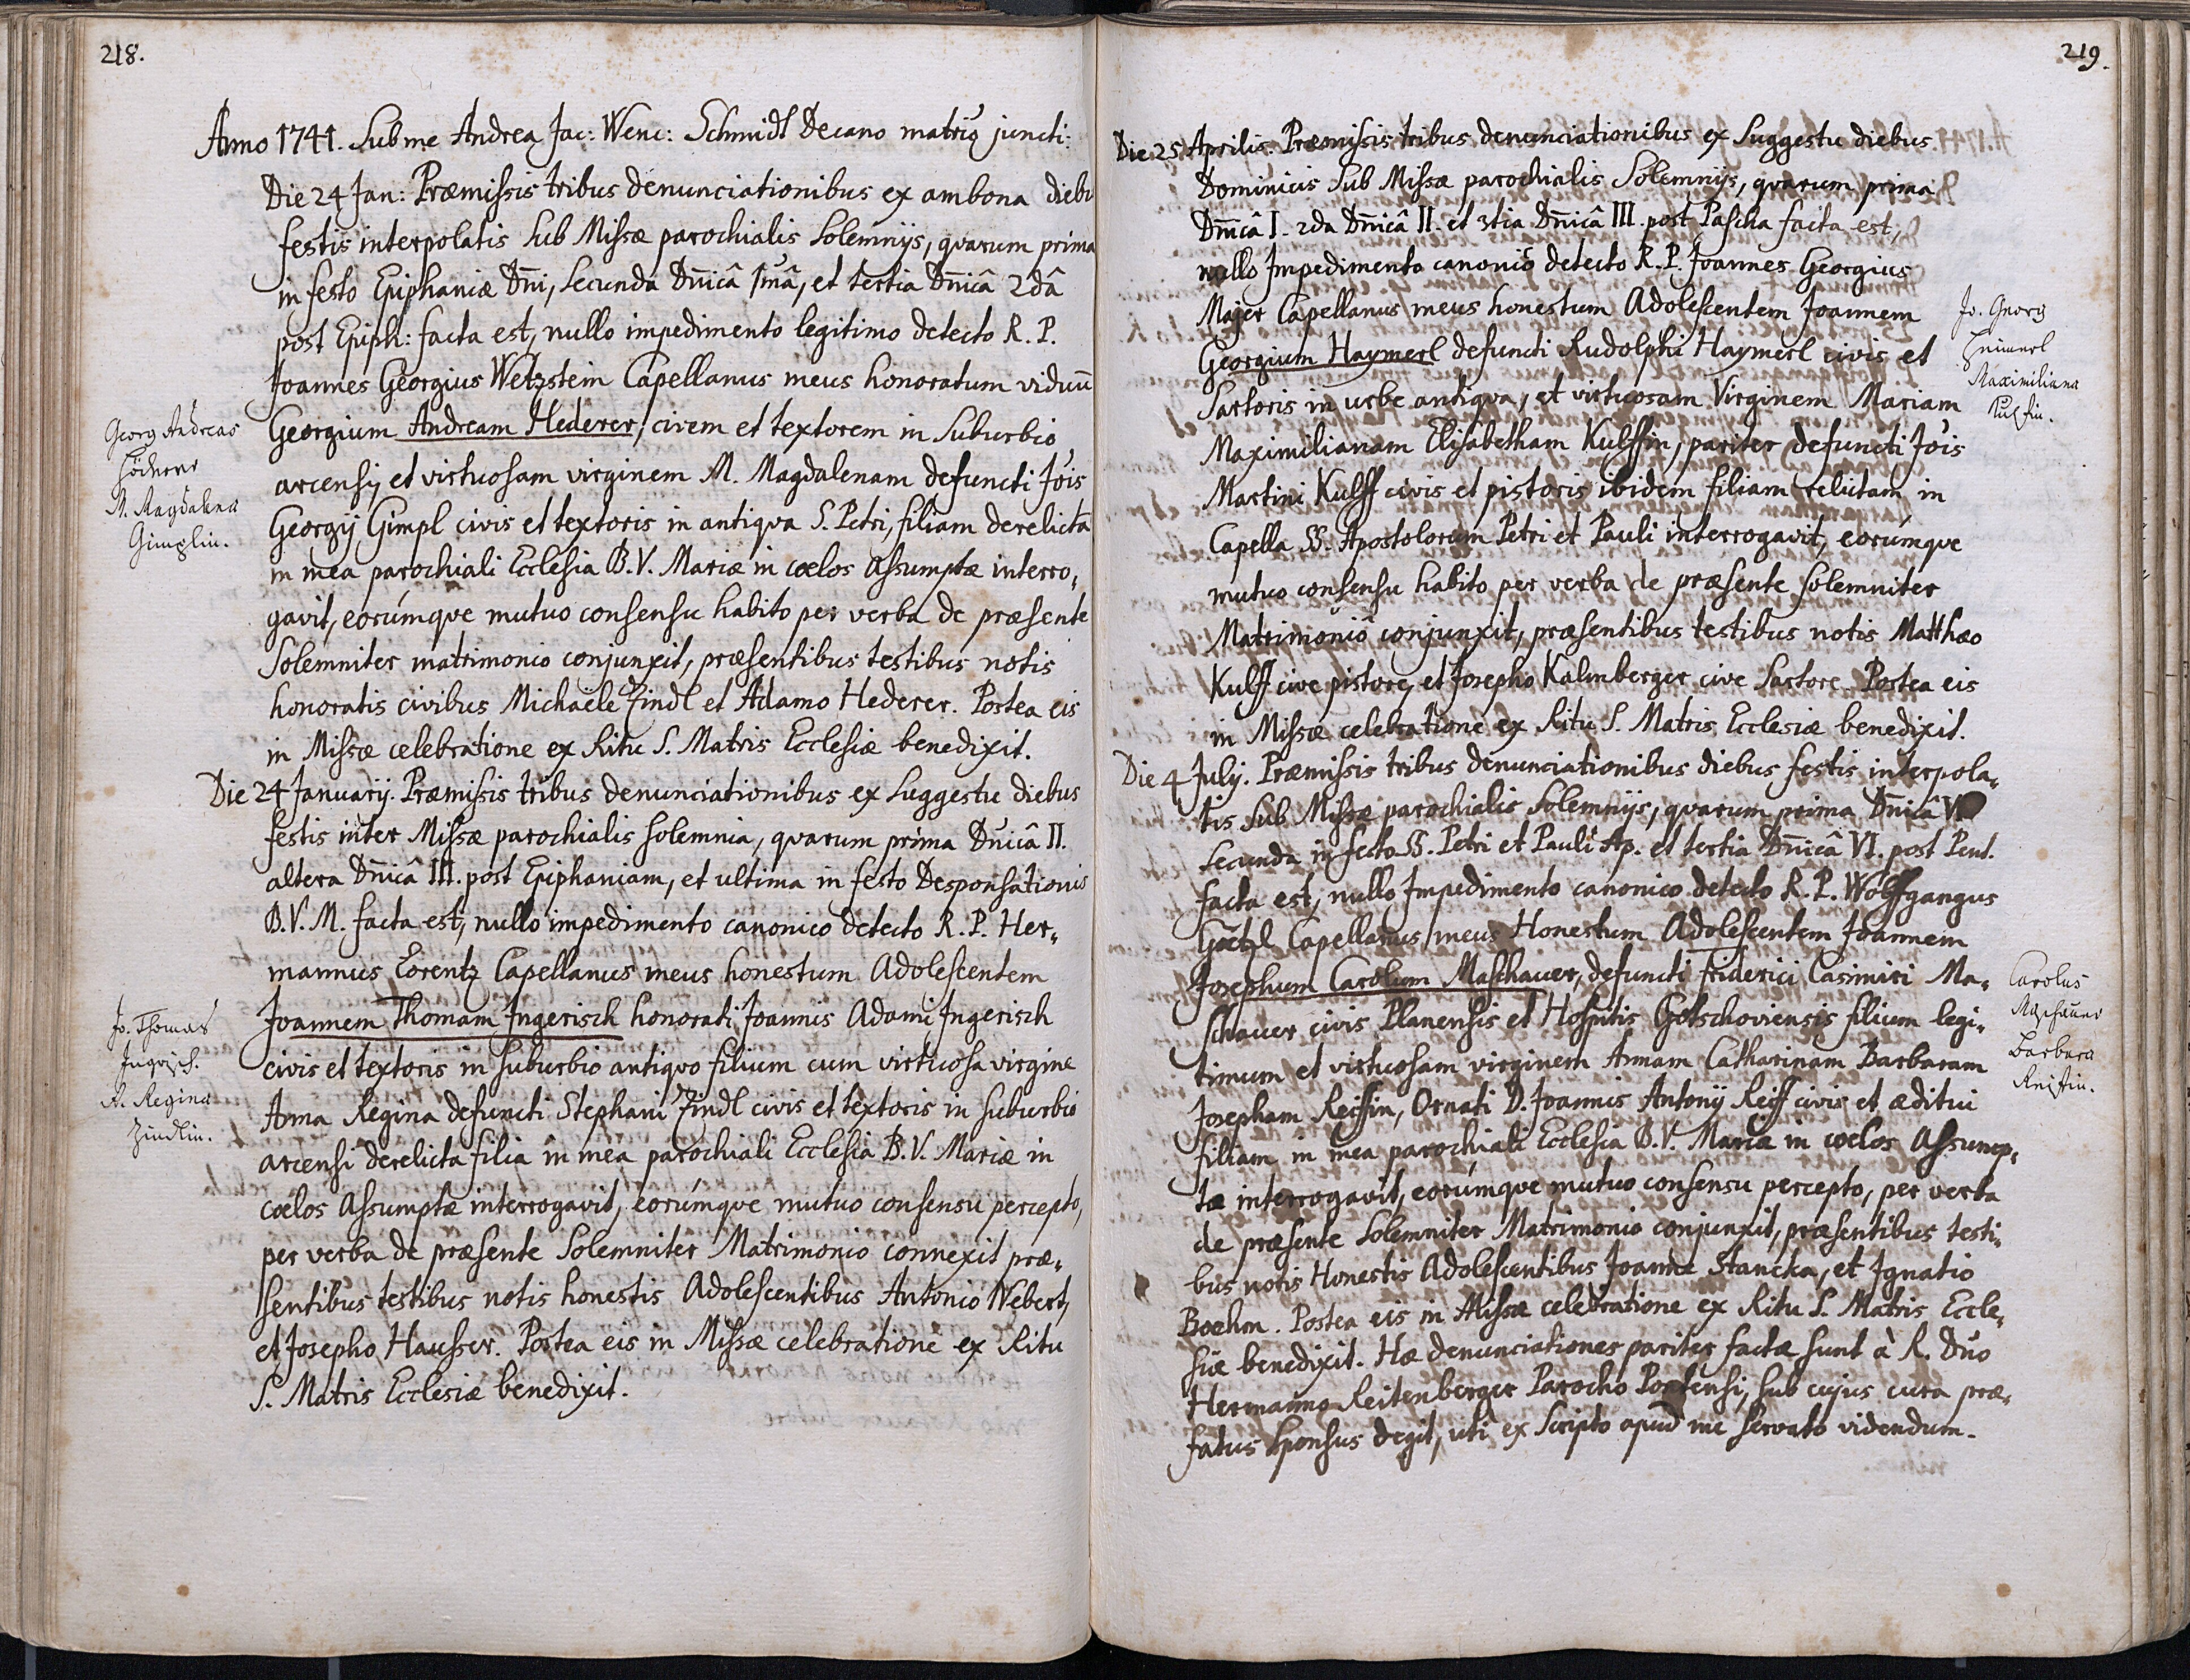 218.
Anno 1741. Sub me Andrea Jac: Wenc: Schmidt Decano matrio juncti:
Die 24 Jan: Præmissis tribus denunciationibus ex ambona diebu
festis interpolatis sub Missæ parochialis Solemnijs, quarum prima
in festo Epiphaniæ Dn̄i, secunda Dn̄icâ 1mâ, et tertia Dn̄icâ 2dâ
post Epiph: facta est, nullo impedimento legitimo detecto R. P.
Joannes Georgius Wetzstein Capellanus meus honoratum viduū
Georgium Andream Hederer, civem et textorem in Suburbio
arcensij et virtuosam virginem M. Magdalenam defuncti Jois
Georgij Gimpl civis et textoris in antiqva S. Petri, filiam derelictā
in mea parochiali Ecclesia B. V. Mariæ in cœlos Assumptæ interro,
gavit, eorúmque mutuo consensu habito per verba de præsente
Solemniter matrimonio conjunxit, præsentibus testibus notis
honoratis civibus Michaële Zindl et Adamo Hederer. Postea eis
in Missæ celebratione ex Ritu S. Matris Ecclesiæ benedixit.
Georg Andreas
Höderer
M. Magdalena
Gimplin.
Die 24 Januarij. Præmissis tribus denunciationibus ex suggestu diebus
festis inter Missæ parochialis solemnia, quarum prima Dn̄icâ II.
altera Dn̄icâ III. post Epiphaniam, et ultima in festo Desponsationis
B. V. M. facta est, nullo impedimento canonico detecto R. P. Her,
mannus Lorentz Capellanus meus honestum Adolescentem
Joannem Thomam Ingerisch honorati Joannis Adami Ingerisch
civis et textoris in suburbio antiqvo filium cum virtuosa virgine
Anna Regina defuncti Stephani Zindl civis et textoris in suburbio
arcensi derelicta filia in mea parochiali Ecclesia B. V. Mariæ in
cœlos Assumptæ interrogavit, eorúmque mutuo consensu percepto,
per verba de præsente Solemniter Matrimonio connexit præ,
sentibus testibus notis honestis Adolescentibus Antonio Webert,
et Josepho Hausser. Postea eis in Missæ celebratione ex Ritu
S. Matris Ecclesiæ benedixit.
Jo. Thomas
Ingrisch.
A. Regina
Zindlin.
219.
Die 25 Aprilis. Præmissis tribus denunciationibus ex Suggestu diebus
Dominicis Sub Missæ parochialis Solemnijs, qvarum prima
Dn̄icâ I. 2da Dn̄icâ II. et 3tia Dn̄icâ III. post Pascha facta est,
nullo Impedimento canonico detecto R. P. Joannes Georgius
Majer Capellanus meus honestum Adolescentem Joannem
Georgium Haymerl defuncti Rudolphi Haymerl civis et
Sartoris in urbe antiqva, et virtuosam Virginem Mariam
Maximilianam Elisabetham Kulffin, pariter defuncti Jois
Martini Kulff civis et pistoris ibidem filiam relictam in
Capella SS. Apostolorum Petri et Pauli interrogavit, eorúmque
mutuo consensu habito per verba de præsente solemniter
Matrimonio conjunxit, præsentibus testibus notis Matthæo
Kulff cive pistore, et Josepho Kalmberger cive Sartore. Postea eis
in Missæ celebratione ex Ritu S. Matris Ecclesiæ benedixit.
Jo. Georg
Heimerl
Maximiliana
Kulfin.
Die 4 Julij. Præmissis tribus denunciationibus diebus festis interpola,
tis sub Missæ parochialis Solemnijs, quarum prima Dn̄icâ V
secunda in festo SS. Petri et Pauli Ap. et tertia Dn̄icâ VI. post Pent.
facta est, nullo Impedimento canonico detecto R. P. Wolffgangus
Goetzl Capellanus meus Honestum Adolescentem Joannem
Josephum Carolum Maschauer, defuncti Friderici Casimiri Ma,
schauer civis Planensis et Hospitis Gotschoviensis filium legi,
timum et virtuosam virginem Annam Catharinam Barbaram
Josepham Reiffin, Ornati D. Joannis Antonij Reiff civis et æditui
filiam in mea parochiali Ecclesia B. V. Mariæ in cœlos Assump,
tæ interrogavit, eorúmque mutuo consensu percepto, per verba
de præsente Solemniter Matrimonio conjunxit, præsentibus testi,
bus notis Honestis Adolescentibus Joanne Stancka, et Ignatio
Boehm. Postea eis in Missæ celebratione ex Ritu S. Matris Eccle,
siæ benedixit. Hæ denunciationes pariter factæ sunt à R. Dno
Hermanno Reitenberger Parocho Portensi, sub cujus cura præ,
fatus sponsus degit, uti ex scripto apud me servato videndum.
Carolus
Maschauer
Barbara
Reifin.